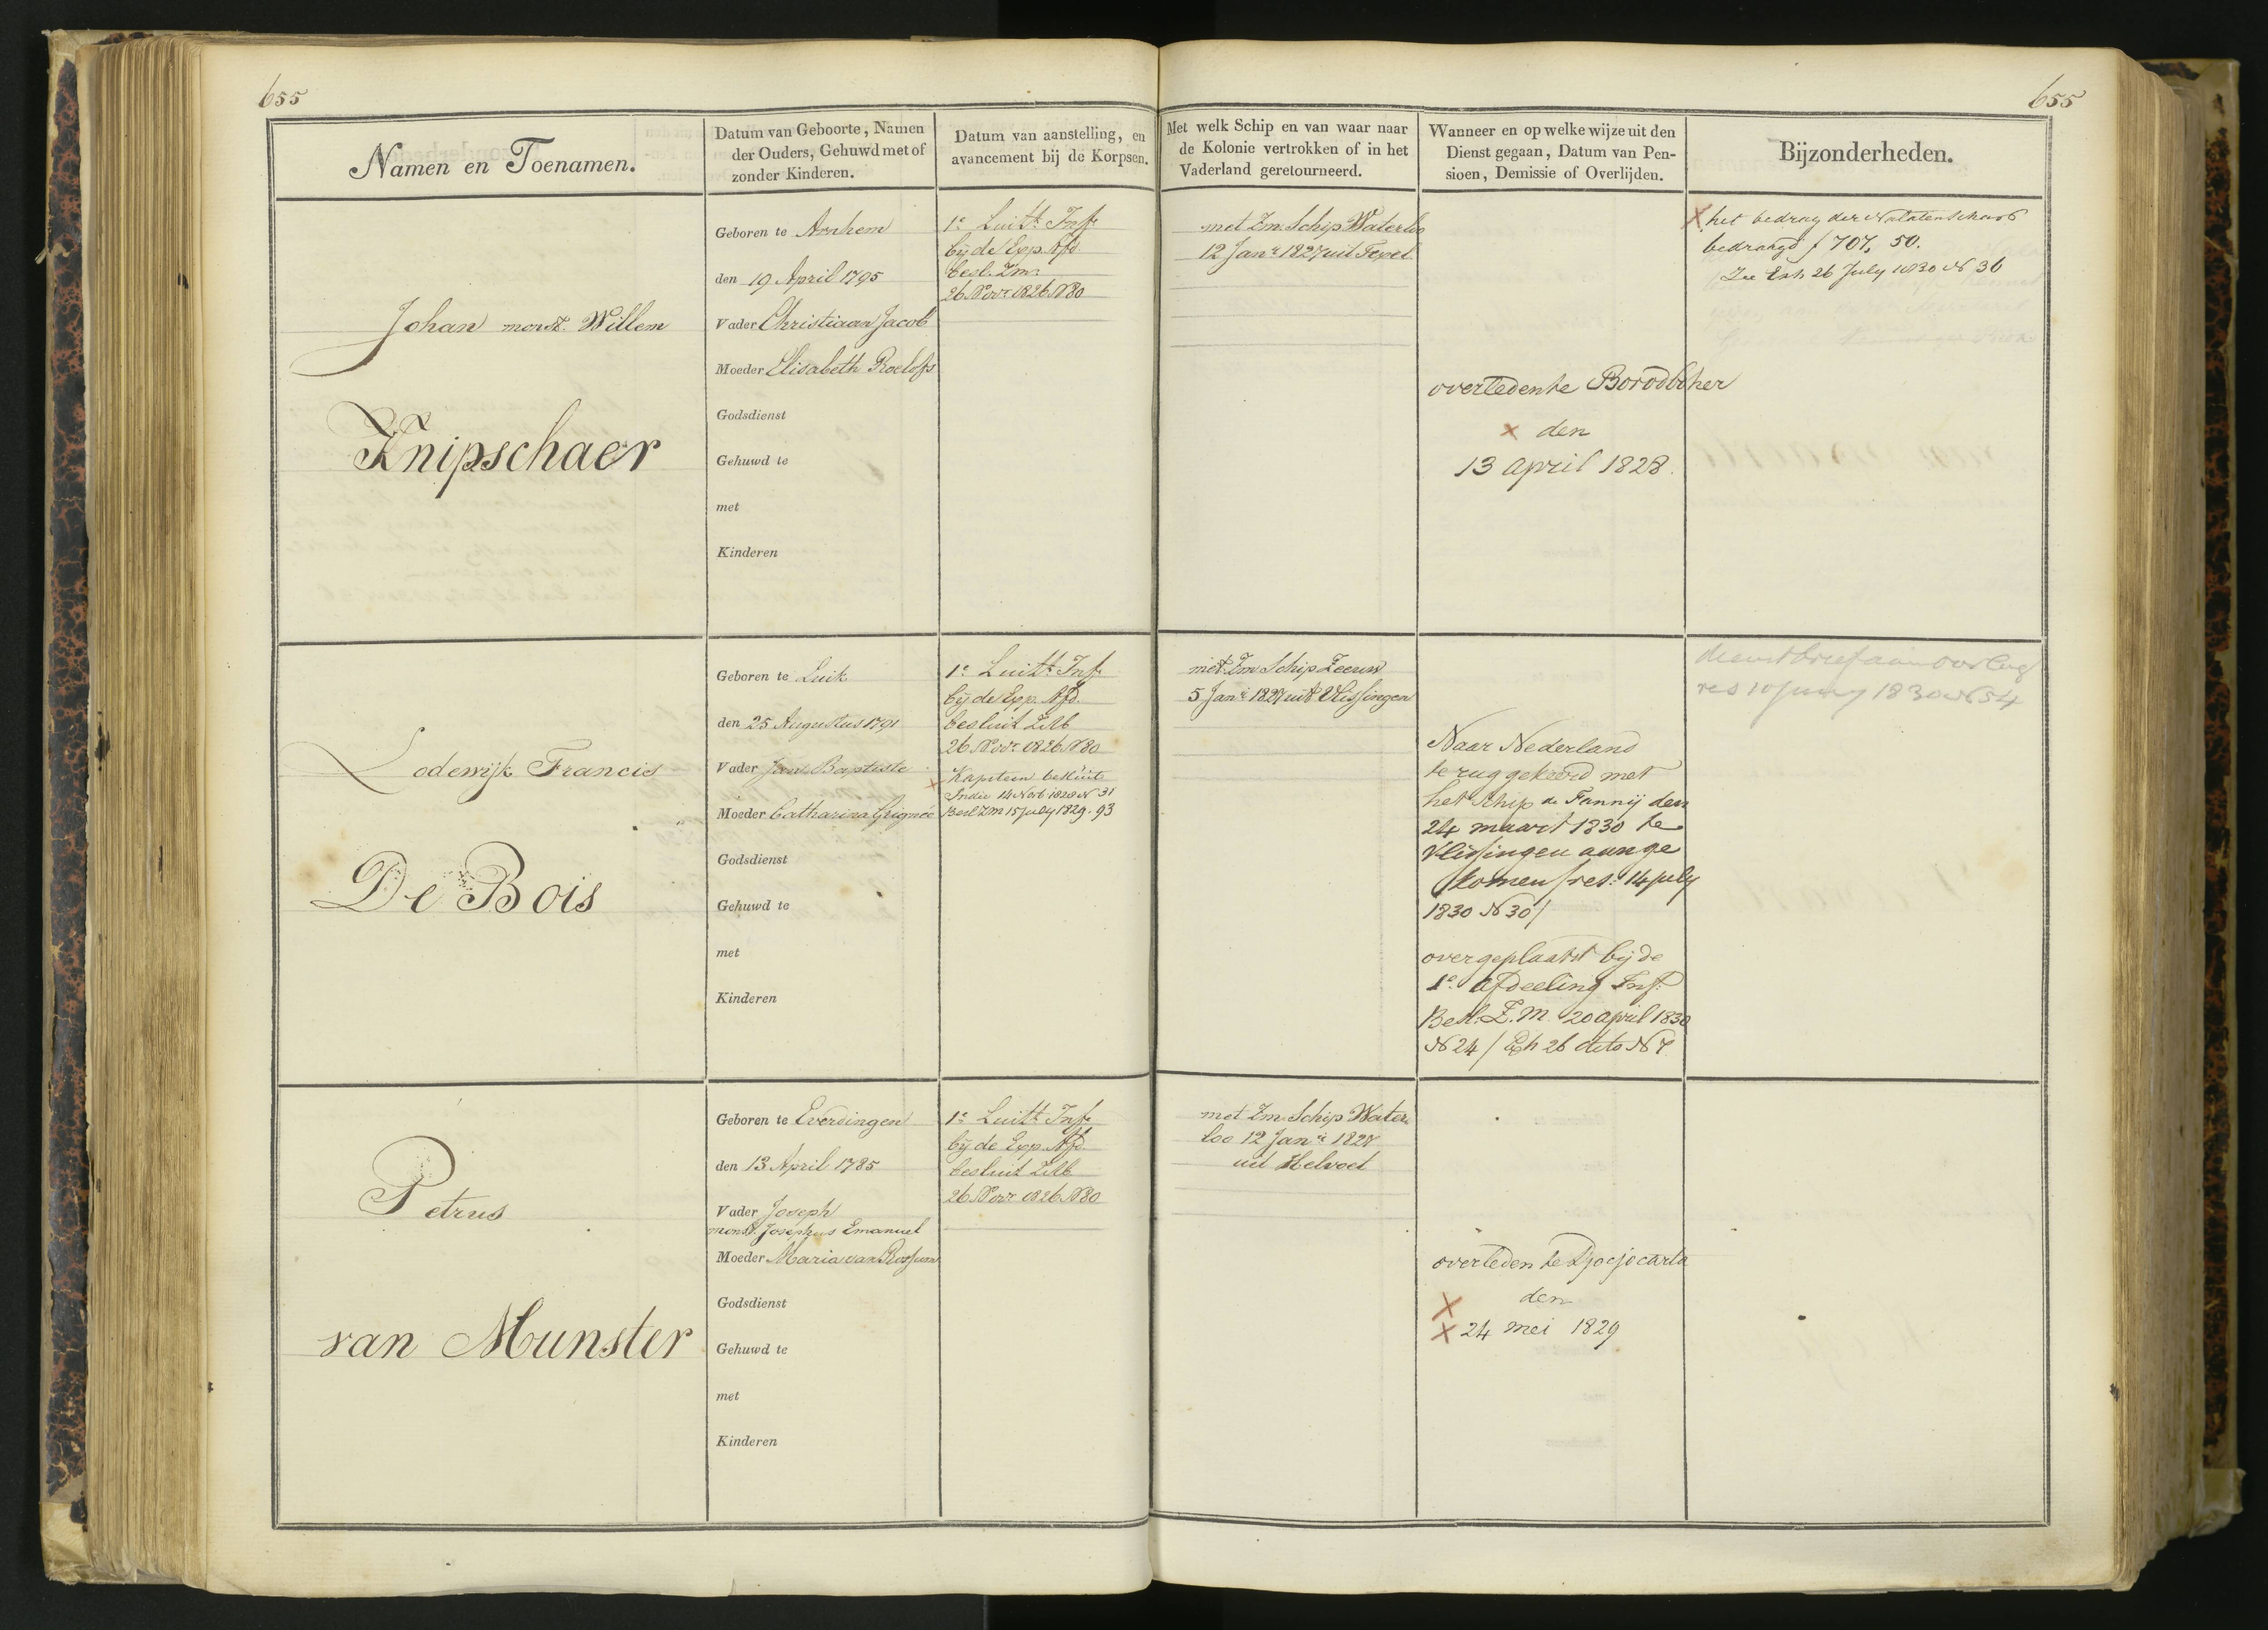 655
655
Namen en Toenamen.
Datum van Geboorte, Namen
der Ouders, Gehuwd met of
zonder Kinderen.
Datum van aanstelling, en
avancement bij de Korpsen.
Met welk Schip en van waar naar
de Kolonie vertrokken of in het
Vaderland geretourneerd.
Wanneer en op welke wijze uit den
Dienst gegaan, Datum van Pen-
sioen, Demissie of Overlijden.
Bijzonderheden.
Johan monst. Willem
Knipschaer
Geboren te Arnhem
den 19 April 1795
Vader Christiaan Jacob
Moeder Elisabeth Roelofs
Godsdienst
Gehuwd te
met
Kinderen
1e Luitt. Inf.
bij de Exp. Afd.
besl. Zm.
26 Novr 1826 N80
met Zm. Schip Waterloo
12 Jan. 1827 uit Texel
overleden te
x den
13 april 1828.
x het bedrag der Nalatenschaps
bedraagd f 707, 50.
Zie Exh 26 July 1830 N 36
Lodewijk Francis
De Bois
Geboren te Luik
den 25 Augustus 1791
Vader Jean Baptiste
Moeder Catharina Grignée
Godsdienst
Gehuwd te
met
Kinderen
1e Luitt. Inf.
bij de Exp. Afd.
besluit ZM
26 Novr 1826 N80
x Kapitein besluit
Indie 14 Novb 1828 N 31
Besl ZM 15 july 1829. 93
met Zm Schip Zeeuw
5 Jan. 1827 uit Vlissingen
Naar Nederland
terug gekeerd met
het schip de Fannij den
24 maart 1830 te
Vlissingen aange
komen /res: 14 july
1830 N 30/
overgeplaatst bij de
1e afdeeling Inf.
Besl. Z.M. 20 april 1830
N 24 / Exh 26 dito N 7
res 10 juny 1830 N 54
Petrus
van Munster
Geboren te Everdingen
den 13 April 1785
Vader Joseph
monst. Josephus Emanuel
Moeder Maria van Rossum
Godsdienst
Gehuwd te
met
Kinderen
1e Luitt. Inf.
bij de Exp. Afd.
besluit ZM
26 Novr 1826 N80
met Zm. Schip Water
loo 12 Jan. 1827
uit Helvoet
overleden te Djocjocarta
x den
x 24 mei 1829